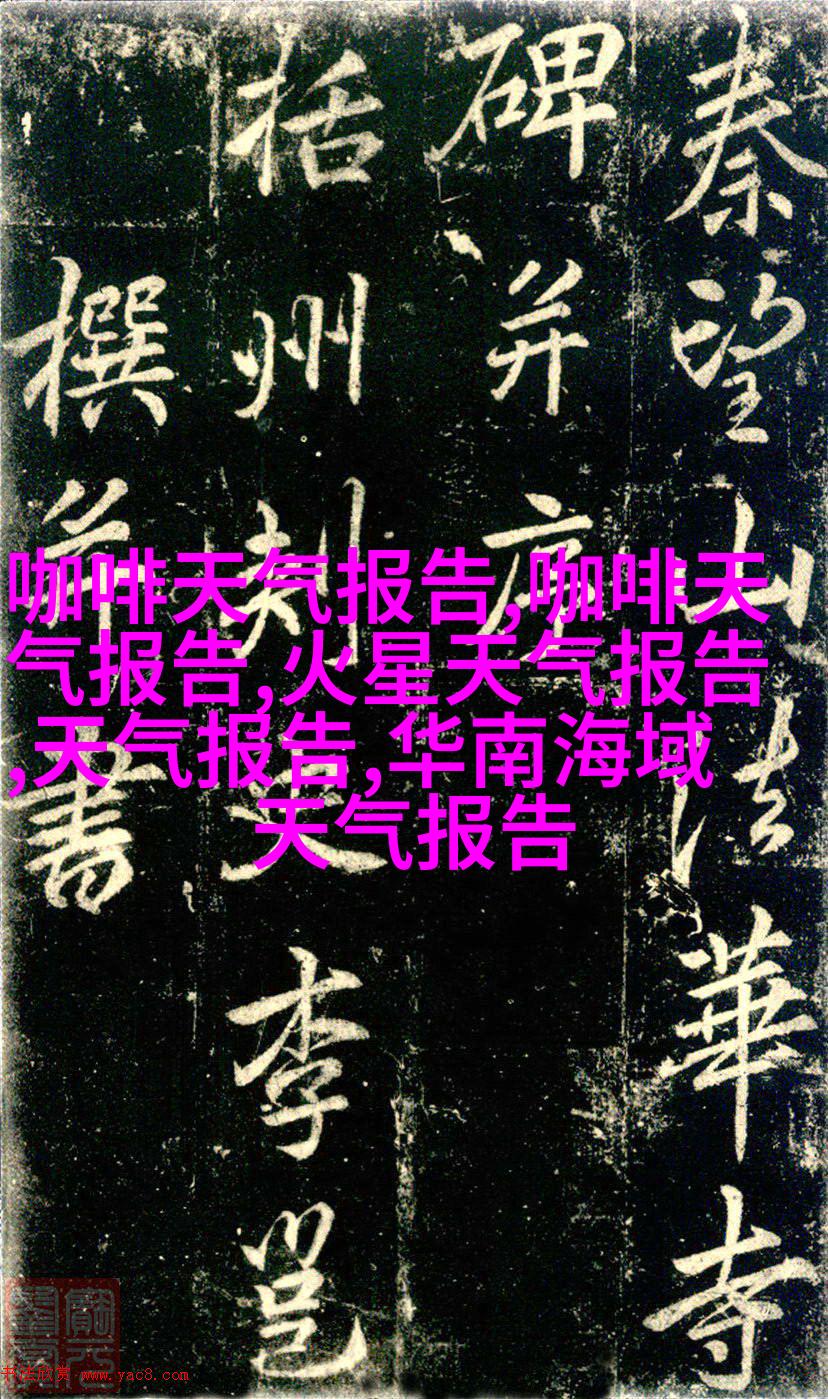 秦望山法華寺
碑并序
括州刺史李邕
撰并書
咖啡天气报告,咖啡天
气报告,火星天气报告
,天气报告,华南海域
天气报告
书法欣赏 www.yac8.com